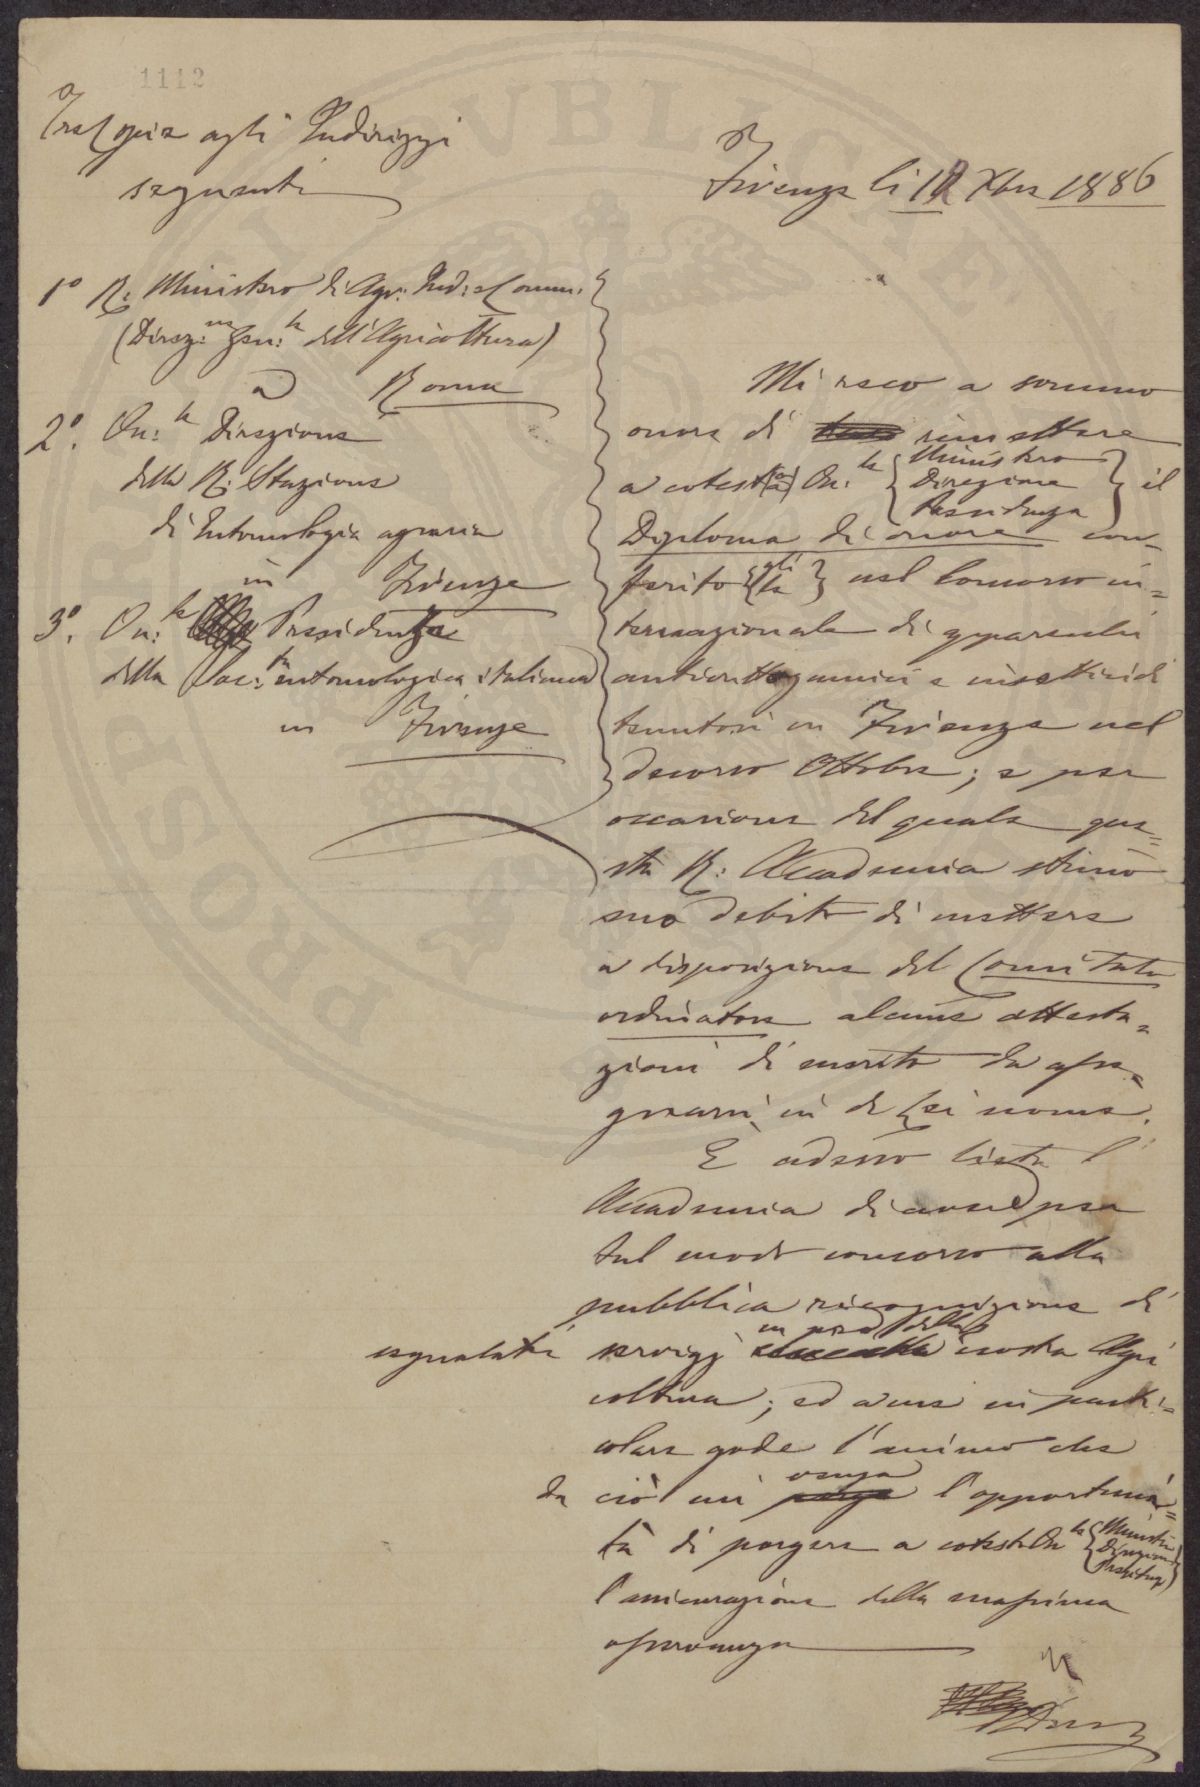 1112
Tre Copie agli Indirizzi
seguenti
Firenze li 12 Xbre 1886
1° R. Ministero di Agr: Ind: e Comm:
(Direz:ne Gen:le dell'Agricoltura)
a Roma
2°. On:le Direzione
della R. Stazione
di Entomologia agraria
in Firenze
3°. On:le Presidenza
della Soc:tà entomologica italiana
in Firenze
Mi reco a sommo
onore di rimettere
a cotest(o/a) On:le { Ministero
Direzione
Presidenza } il
Diploma di onore con=
ferito { gli
le } nel Concorso in=
ternazionale di apparecchi
anticrittogamici e insetticidi
tenutosi in Firenze nel
decorso Ottobre; e per
occasione del quale que=
sta R: Accademia stimò
suo debito di mettere
a disposizione del Comitato
ordinatore alcune attesta=
zioni di merito da asse=
gnarsi in di lei nome.
E adesso lieta l'
Accademia di aver per
tal modo concorso alla
pubblica ricognizione di
segnalati servigj in pro della nostra Agri
coltura; ed a me in parti=
colare gode l'animo che
da ciò mi venga l'opportuni=
tà di porgere a cotest On:le { Ministero
Direzione
Presidenza }
l'assicurazione della massima
osservanza